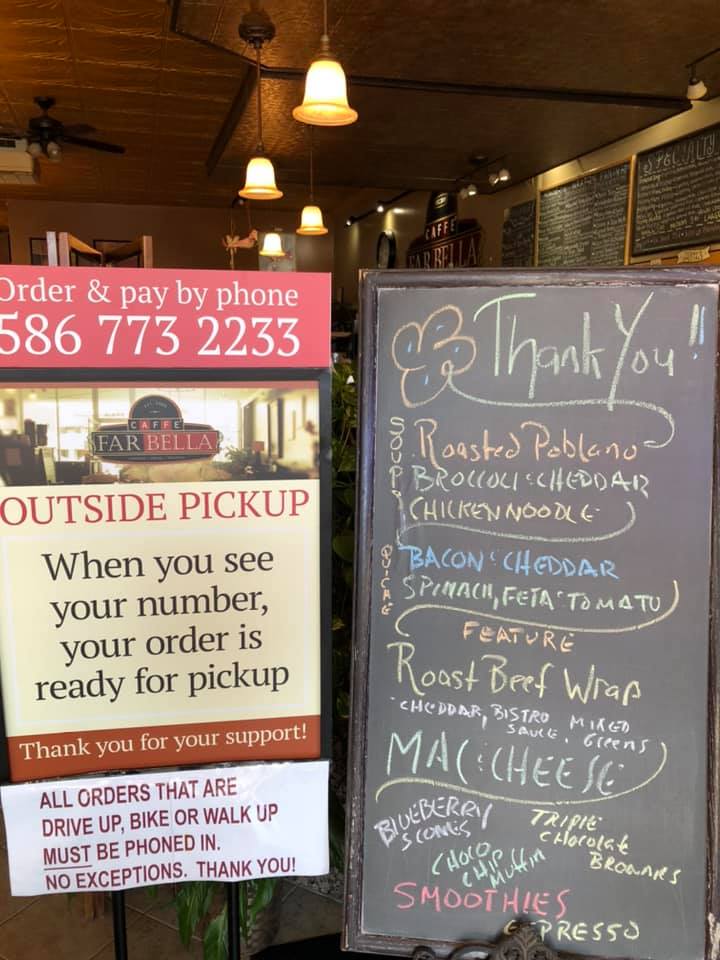 Order & pay by phone
586 773 2233
CAFFE
FAR BELLA
OUTSIDE PICKUP
When you see
your number,
your order is
ready for pickup
Thank you for your support!
ALL ORDERS THAT ARE
DRIVE UP, BIKE OR WALK UP
MUST BE PHONED IN.
NO EXCEPTIONS. THANK YOU!
CAFFE
FAR BELLA
SPECIALTY
Thank You!
SOUPS
Roasted Poblano
BROCCOLI & CHEDDAR
CHICKEN NOODLE
QUICHE
BACON & CHEDDAR
SPINACH, FETA & TOMATO
FEATURE
Roast Beef Wrap
CHEDDAR, BISTRO SAUCE, MIXED Greens
MAC & CHEESE
BLUEBERRY SCONES
TRIPLE Chocolate BROWNIES
CHOCO CHIP Muffin
SMOOTHIES
ESPRESSO